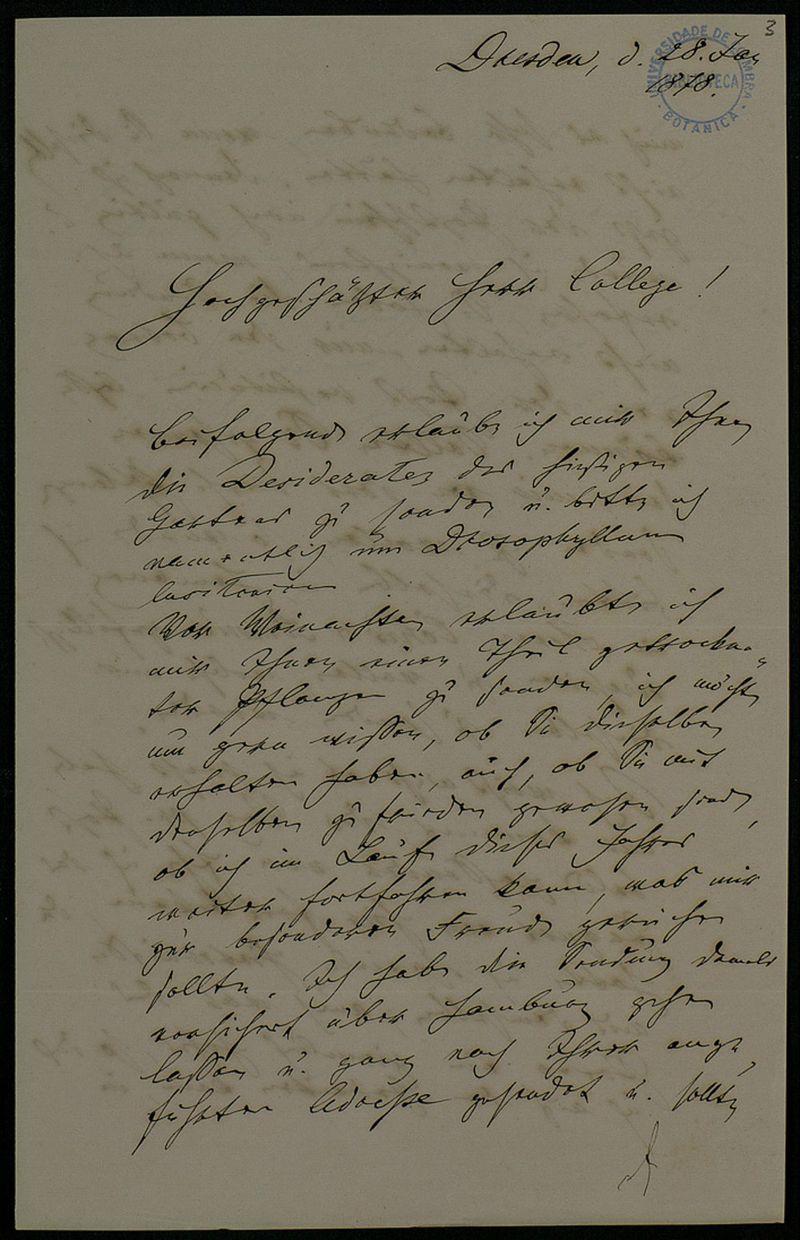 3
UNIVERSIDADE DE COIMBRA
BIBLIOTECA
BOTANICA
Dresden, d. 28. Jan
1878.
Hochgeschätzter Herr College!
Beifolgend erlaube ich mir Ihnen
die Desideraten des hiesigen
Gartens zu senden u. bitte ich
namentlich um Drosophyllum
lusitanicum
Vor Weinachten erlaubte ich
mir Ihnen einen Theil getrockne-
ter Pflanzen zu senden, ich möchte
nun gern wissen, ob Sie dieselben
erhalten haben, auch, ob Sie mit
denselben zufrieden gewesen sind,
ob ich im Laufe dieses Jahres
weiter fortfahren kann, was mir
zur besonderen Freude gereichen
sollte. Ich habe die Sendung damals
versichert über Hamburg gehen
lassen u. ganz nach Ihrer ange-
führten Adresse gesendet u. sollte